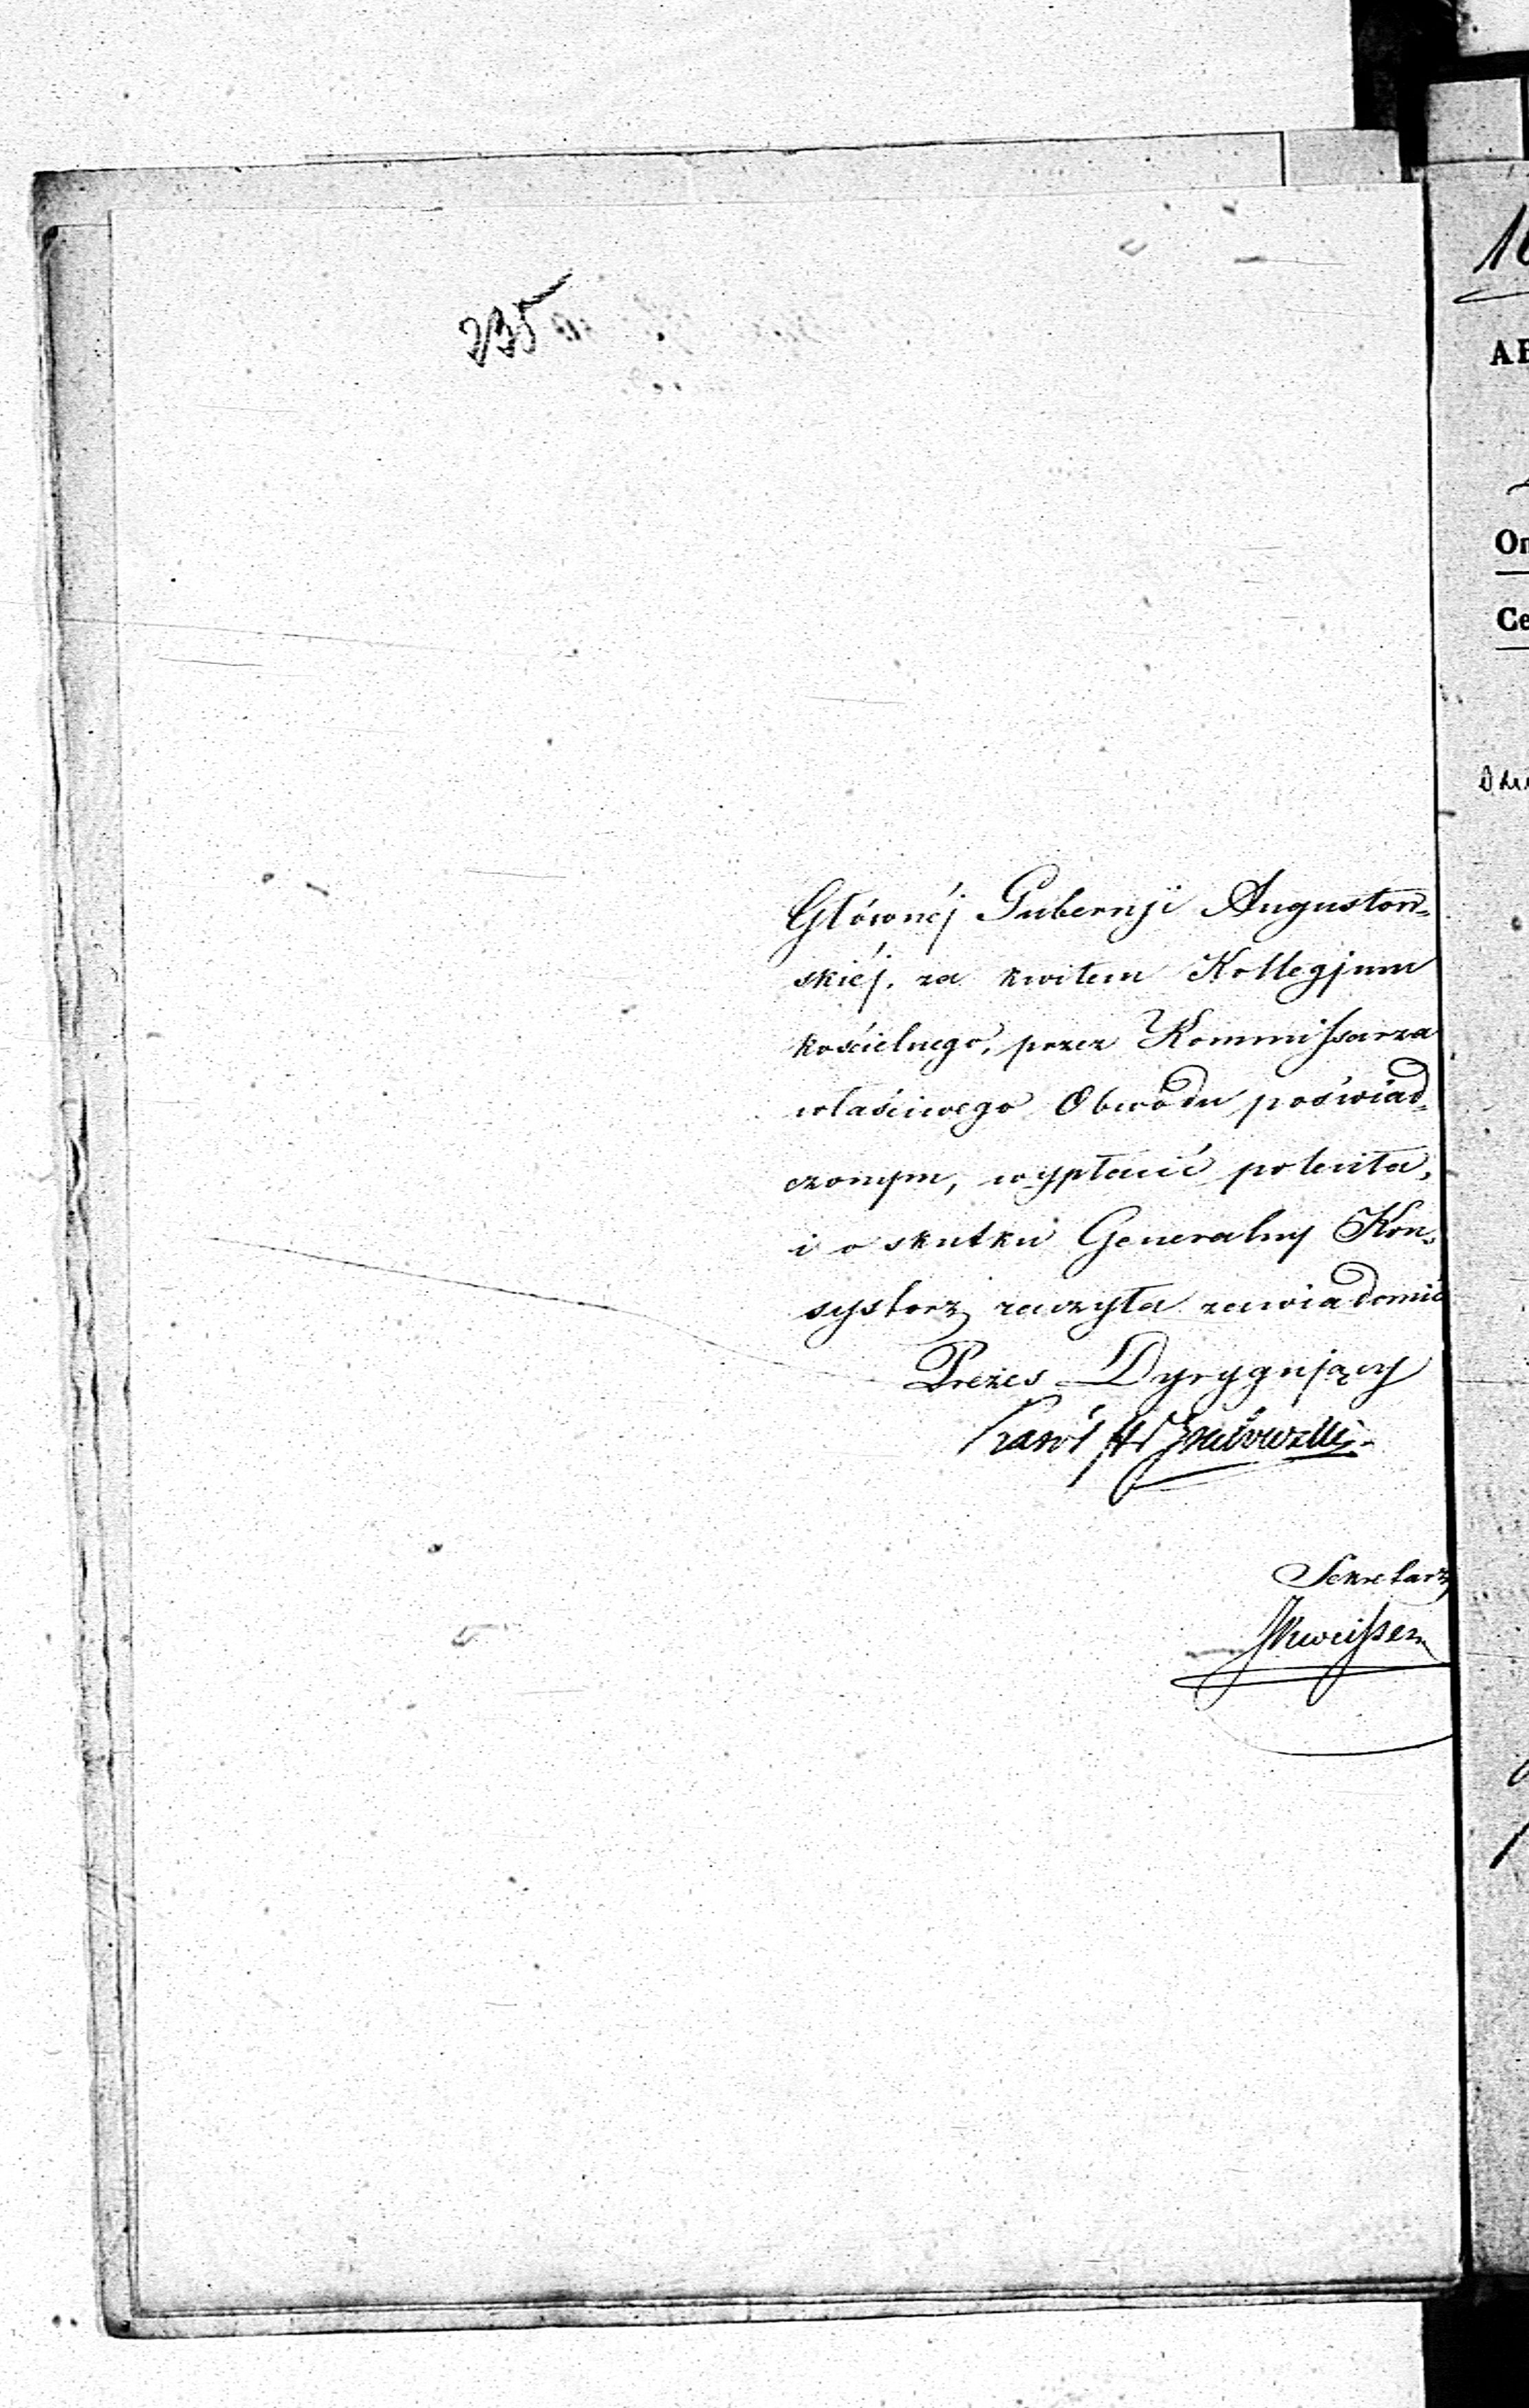 235
Głównéj Gubernji Augustow-
skiéj, za kwitem Kollegjum
kościelnego, przez Kommissarza
właściwego Obwodu poświad-
czonym, wypłacić poleciła,
i o skutku Generalny Kon-
systorz raczyła zawiadomić
Prezes Dyrygujący
Karól
Sekretarz
10
AB
On
Ce